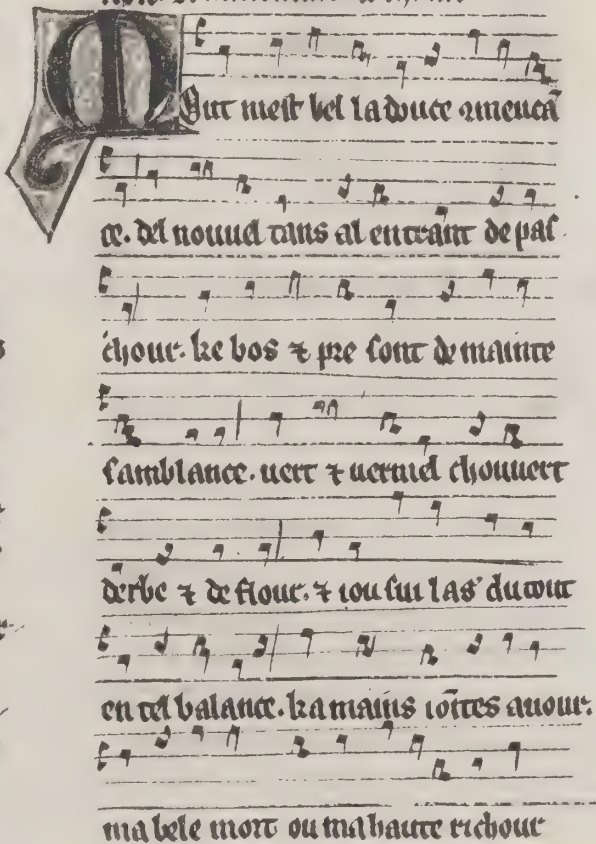 Mout mest bel la douce 9mencā
ce. del nouuel tans al entrant de pas
chour. ke bos ⁊ pre sont de mainte
samblance. uert ⁊ uermel chouuert
derbe ⁊ de flour. ⁊ iou sui las dutout
en tel balance. ka mains iointes aour.
ma bele mort ou ma haute richour